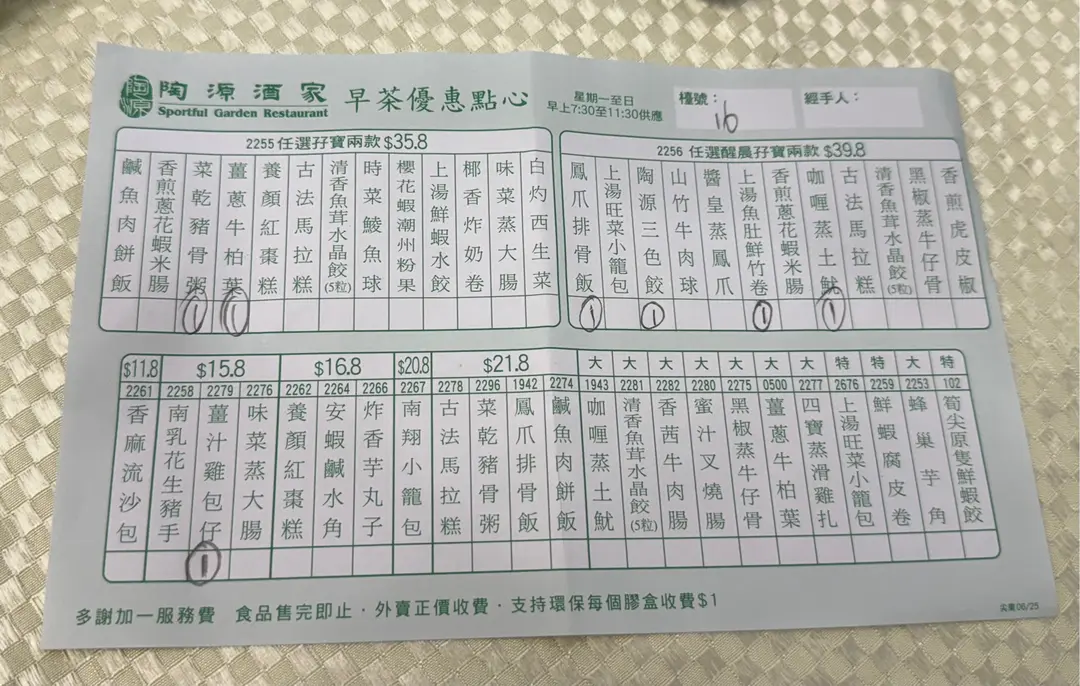 陶源
陶源酒家
Sportful Garden Restaurant
早茶優惠點心
星期一至日
早上7:30至11:30供應
檯號：
16
經手人：
2255 任選孖寶兩款 $35.8
鹹魚肉餅飯
香煎蔥花蝦米腸
菜乾豬骨粥
薑蔥牛柏葉
養顏紅棗糕
古法馬拉糕
清香魚茸水晶餃(5粒)
時菜鯪魚球
櫻花蝦潮州粉果
上湯鮮蝦水餃
椰香炸奶卷
味菜蒸大腸
白灼西生菜
1 1
2256 任選醒晨孖寶兩款 $39.8
鳳爪排骨飯
上湯旺菜小籠包
陶源三色餃
山竹牛肉球
醬皇蒸鳳爪
上湯魚肚鮮竹卷
香煎蔥花蝦米腸
咖喱蒸土魷
古法馬拉糕
清香魚茸水晶餃(5粒)
黑椒蒸牛仔骨
香煎虎皮椒
1 1 1 1
$11.8 $15.8 $16.8 $20.8 $21.8 大 大 大 大 大 大 大 特 特 大 特
2261 2258 2279 2276 2262 2264 2266 2267 2278 2296 1942 2274 1943 2281 2282 2280 2275 0500 2277 2676 2259 2253 102
香麻流沙包
南乳花生豬手
薑汁雞包仔
味菜蒸大腸
養顏紅棗糕
安蝦鹹水角
炸香芋丸子
南翔小籠包
古法馬拉糕
菜乾豬骨粥
鳳爪排骨飯
鹹魚肉餅飯
咖喱蒸土魷
清香魚茸水晶餃(5粒)
香茜牛肉腸
蜜汁叉燒腸
黑椒蒸牛仔骨
薑蔥牛柏葉
四寶蒸滑雞扎
上湯旺菜小籠包
鮮蝦腐皮卷
蜂巢芋角
筍尖原隻鮮蝦餃
1
多謝加一服務費 食品售完即止．外賣正價收費．支持環保每個膠盒收費$1
尖東06/25